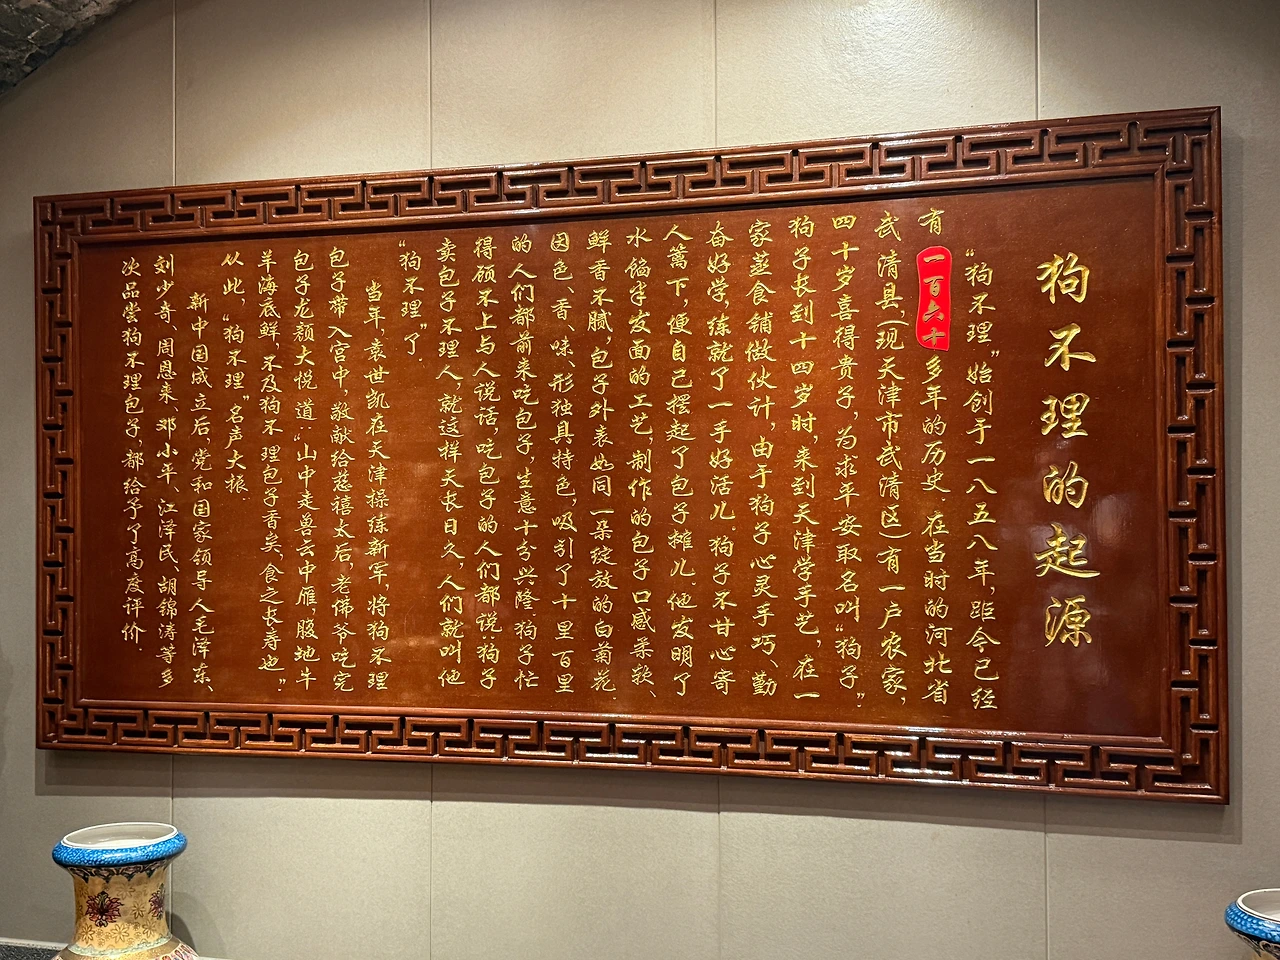 狗不理的起源
“狗不理”始创于一八五八年，距今已经
有一百六十多年的历史.在当时的河北省
武清县，(现天津市武清区)有一户农家，
四十岁喜得贵子，为求平安取名叫“狗子”.
狗子长到十四岁时，来到天津学手艺，在一
家蒸食铺做伙计，由于狗子心灵手巧、勤
奋好学，练就了一手好活儿.狗子不甘心寄
人篱下，便自己摆起了包子摊儿.他发明了
水馅半发面的工艺，制作的包子口感柔软、
鲜香不腻，包子外表如同一朵绽放的白菊花.
因色、香、味、形独具特色，吸引了十里百里
的人们都前来吃包子，生意十分兴隆.狗子忙
得顾不上与人说话，吃包子的人们都说：狗子
卖包子不理人，就这样天长日久，人们就叫他
“狗不理”了.
当年，袁世凯在天津操练新军，将狗不理
包子带入宫中，敬献给慈禧太后，老佛爷吃完
包子龙颜大悦，道：“山中走兽云中雁，腹地牛
羊海底鲜，不及狗不理包子香矣，食之长寿也”.
从此，“狗不理”名声大振.
新中国成立后，党和国家领导人毛泽东、
刘少奇、周恩来、邓小平、江泽民、胡锦涛等多
次品尝狗不理包子，都给予了高度评价.